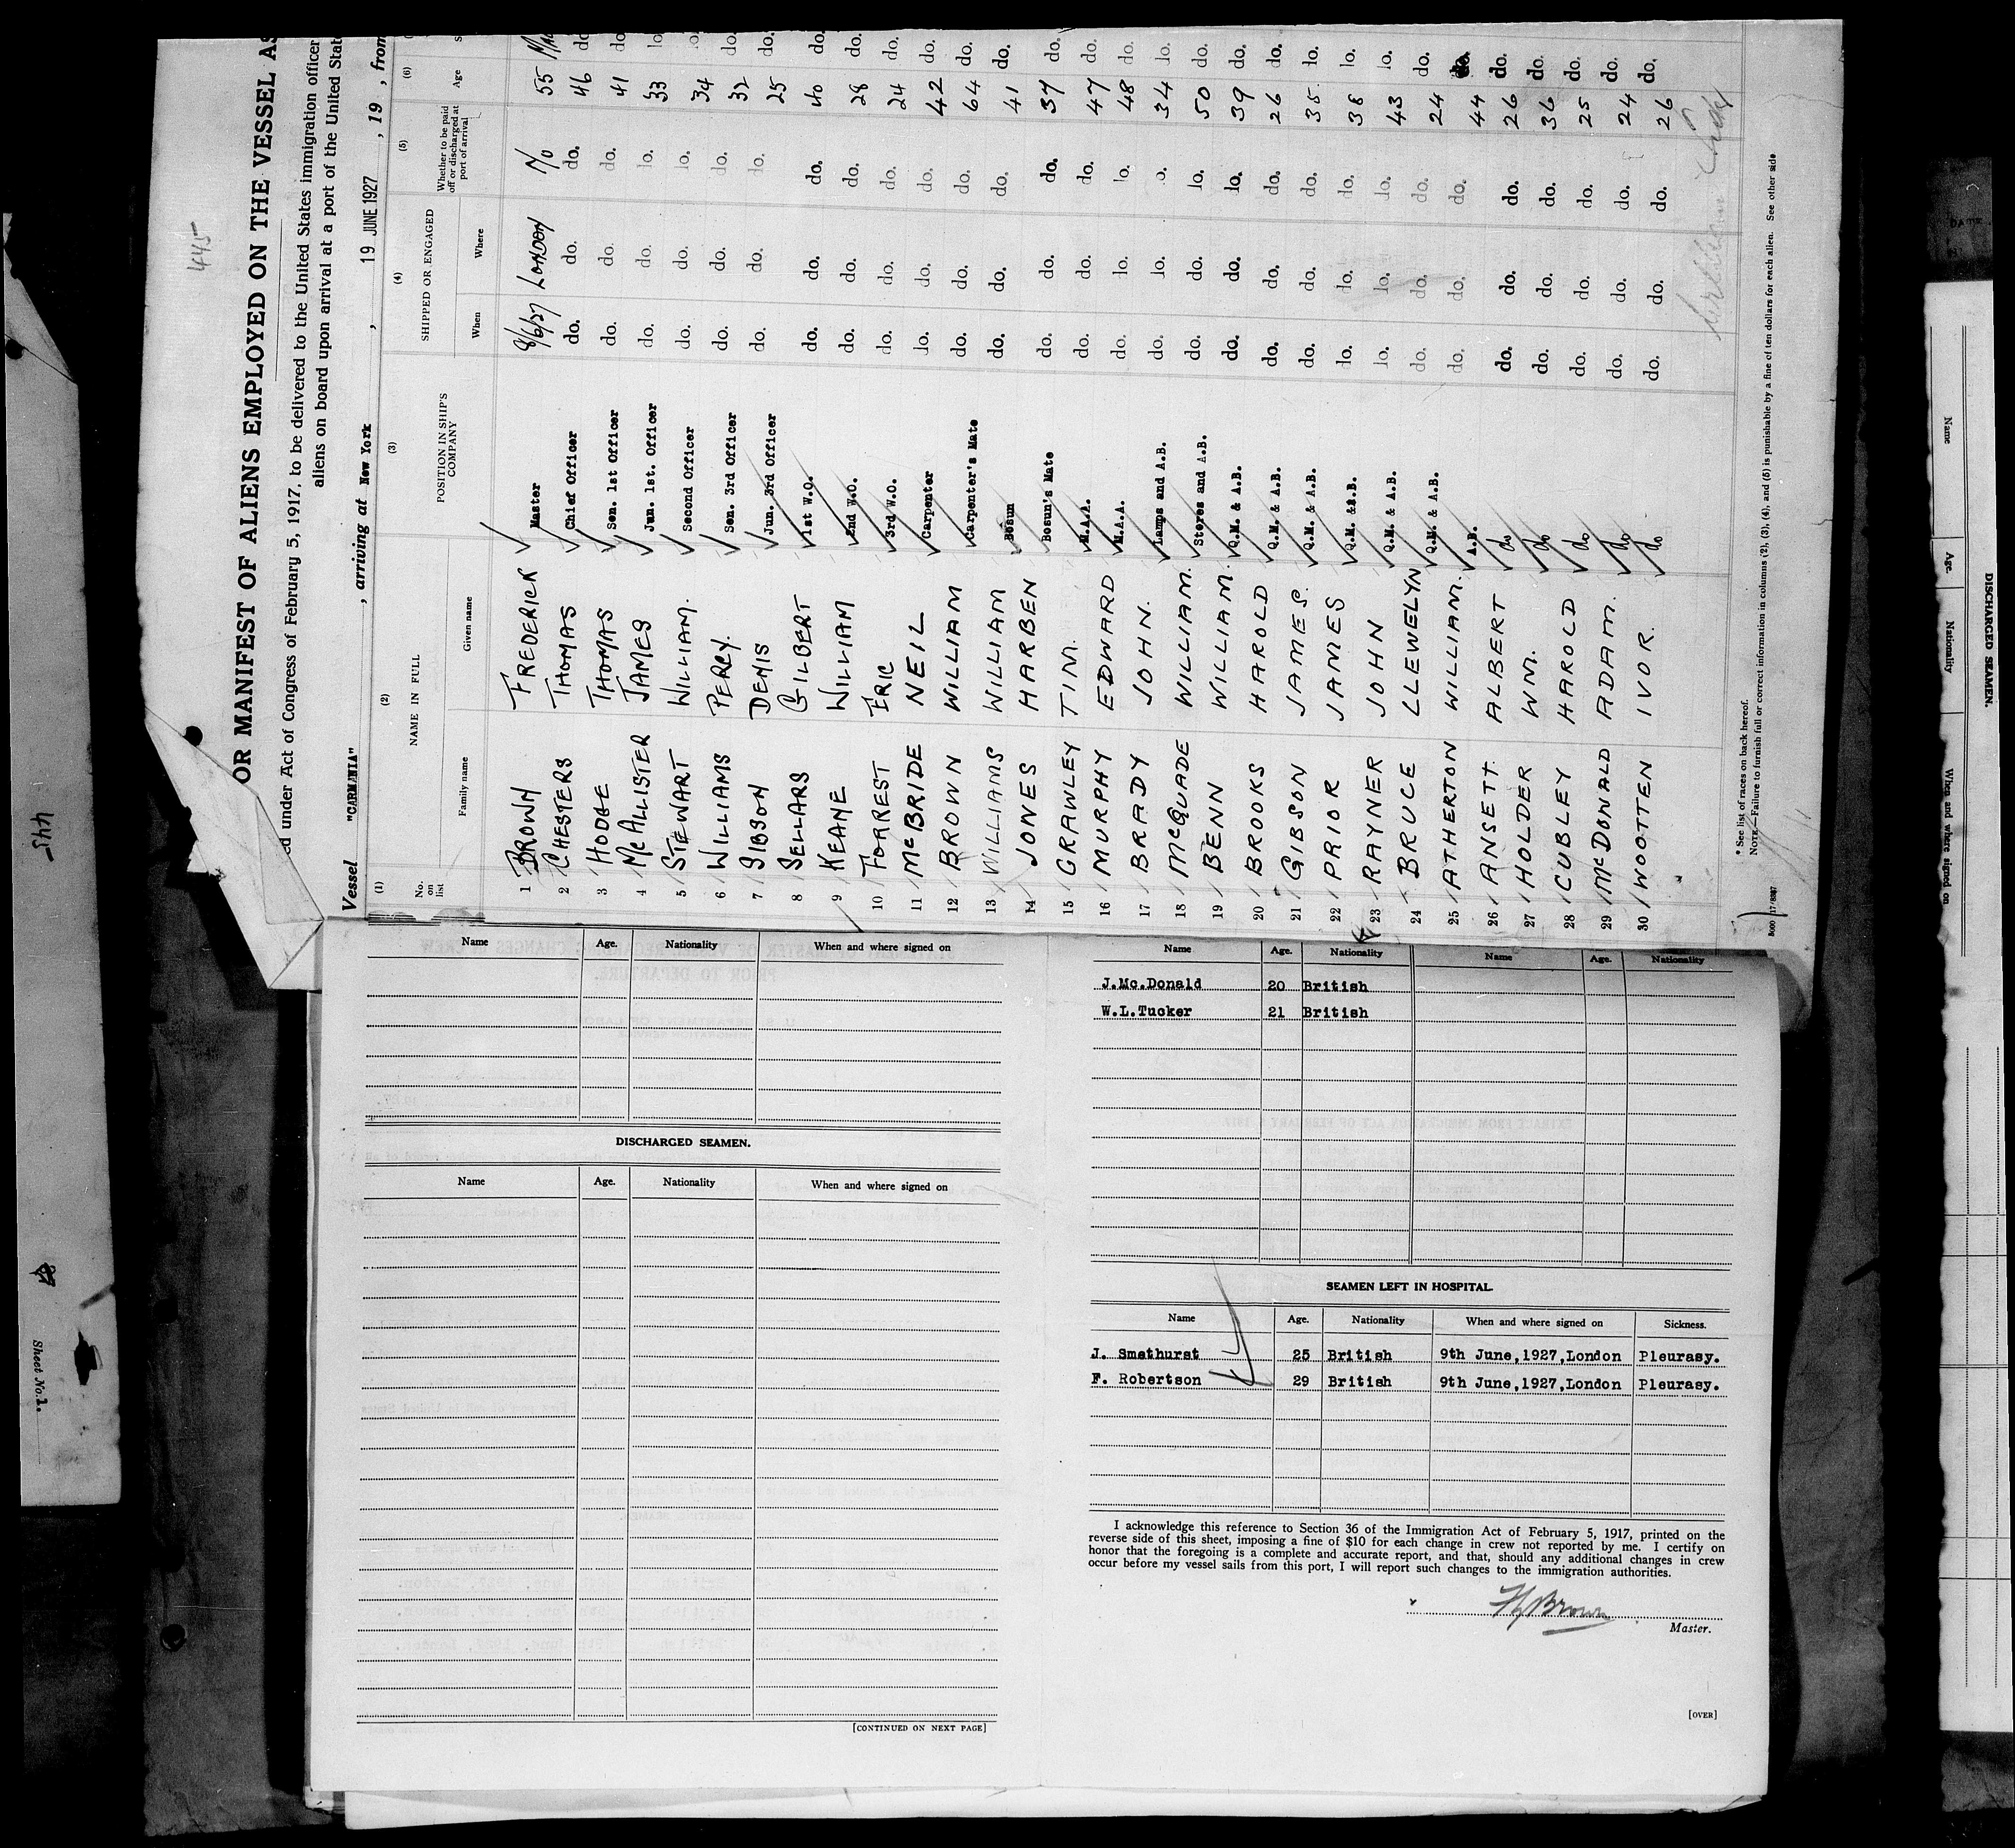 445
OR MANIFEST OF ALIENS EMPLOYED ON THE VESSEL AS
ed under Act of Congress of February 5, 1917, to be delivered to the United States immigration officer
aliens on board upon arrival at a port of the United Stat
Vessel "CARMANIA" , arriving at New York , 19 JUNE 1927 , 19 , from
(1) (2) (3) (4) (5) (6)
No. on list NAME IN FULL POSITION IN SHIP'S COMPANY SHIPPED OR ENGAGED Whether to be paid off or discharged at port of arrival Age
Family name Given name When Where
1 BROWN FREDERICK Master 8/6/27 LONDON No 55
2 CHESTERS THOMAS Chief Officer do. do. do. 46 do
3 HODGE THOMAS Sen. 1st Officer do. do. do. 41 do
4 McALLISTER JAMES Jun. 1st. Officer do. do. lo. 33 lo
5 STEWART WILLIAM. Second Officer do. do. lo. 34 lo.
6 WILLIAMS PERCY. Sen. 3rd Officer do. do. do. 32 do.
7 GIBSON DENIS Jun. 3rd Officer do. do. lo. 25 do.
8 SELLARS GILBERT 1st W.O. do. do. do. 40 do.
9 KEANE WILLIAM 2nd W.O. do. do. do. 28 do.
10 FORREST ERIC 3rd W.O. do. do. do. 24 do.
11 McBRIDE NEIL Carpenter lo. lo. do. 42 do.
12 BROWN WILLIAM Carpenter's Mate do. do. do. 64 do.
13 WILLIAMS WILLIAM Bosun do. do. do. 41 do.
14 JONES HARBEN Bosun's Mate do. do. do. 37 do.
15 GRAWLEY TIM. M.A.A. do. do. do. 47 do.
16 MURPHY EDWARD M.A.A. do. lo. lo. 48 do.
17 BRADY JOHN. Lamps and A.B. do. lo. o. 34 lo.
18 McQUADE WILLIAM. Stores and A.B. do. do. lo. 50 do.
19 BENN WILLIAM. Q.M. & A.B. do. do. lo. 39 do.
20 BROOKS HAROLD Q.M. & A.B. do. do. do. 26 do.
21 GIBSON JAMES. Q.M. & A.B. do. do. do. 35 lo.
22 PRIOR JAMES Q.M. &A.B. lo. do. do. 38 lo.
23 RAYNER JOHN Q.M. & A.B. lo. lo. lo. 43 lo.
24 BRUCE LLEWELYN Q.M. & A.B. do. do. do. 24 do.
25 ATHERTON WILLIAM. A.B. do. do. do. 44 do.
26 ANSETT. ALBERT do do. do. do. 26 do.
27 HOLDER WM. do do. do. do. 36 do.
28 CUBLEY HAROLD do do. do. do. 25 do.
29 McDONALD ADAM. do do. do. do. 24 do.
30 WOOTTEN IVOR. do do. do. do. 26 do.
* See list of races on back hereof.
NOTE.—Failure to furnish full or correct information in columns (2), (3), (4), and (5) is punishable by a fine of ten dollars for each alien. See other side
Name Age. Nationality When and where signed on
DISCHARGED SEAMEN.
Name Age. Nationality When and where signed on
[CONTINUED ON NEXT PAGE]
Name Age. Nationality Name Age. Nationality
J.Mc.Donald 20 British
W.L.Tucker 21 British
SEAMEN LEFT IN HOSPITAL.
Name Age. Nationality When and where signed on Sickness.
J. Smethurst 25 British 9th June,1927,London Pleurasy.
F. Robertson 29 British 9th June,1927,London Pleurasy.
I acknowledge this reference to Section 36 of the Immigration Act of February 5, 1917, printed on the
reverse side of this sheet, imposing a fine of $10 for each change in crew not reported by me. I certify on
honor that the foregoing is a complete and accurate report, and that, should any additional changes in crew
occur before my vessel sails from this port, I will report such changes to the immigration authorities.
Brown
Master.
[OVER]
445
Sheet No.1.
DATE
DISCHARGED SEAMEN.
Name Age. Nationality When and where signed on